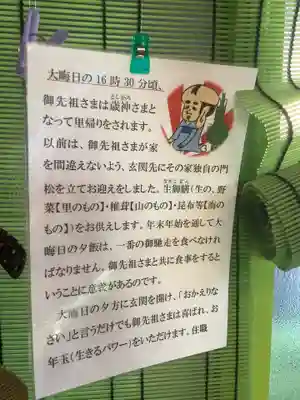 大晦日の16時30分頃、
としがみ
御先祖さまは歳神さまと
なって里帰りをされます。
以前は、御先祖さまが家
を間違えないよう、玄関先にその家独自の門
松を立てお迎えをしました。生御膳（生の、野
菜【里のもの】・椎茸【山のもの】・昆布等【海の
もの】）をお供えします。年末年始を通して大
晦日の夕飯は、一番の御馳走を食べなけれ
ばなりません。御先祖さまと共に食事をすると
いうことに意義があるのです。
大晦日の夕方に玄関を開け、「おかえりな
さい」と言うだけでも御先祖さまは喜ばれ、お
年玉（生きるパワー）をいただけます。住職